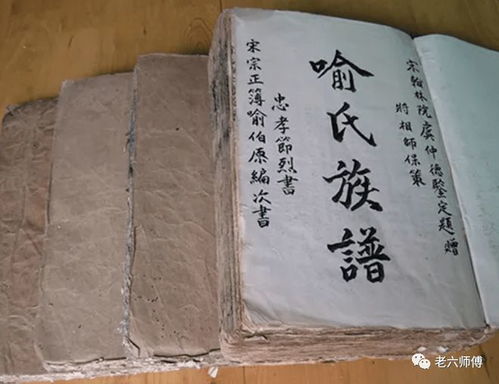 宋翰林院虞仲德鑒定題贈
將相師保策
喻氏族譜
忠孝節烈書
宋宗正簿喻伯原編次書
老六师傅